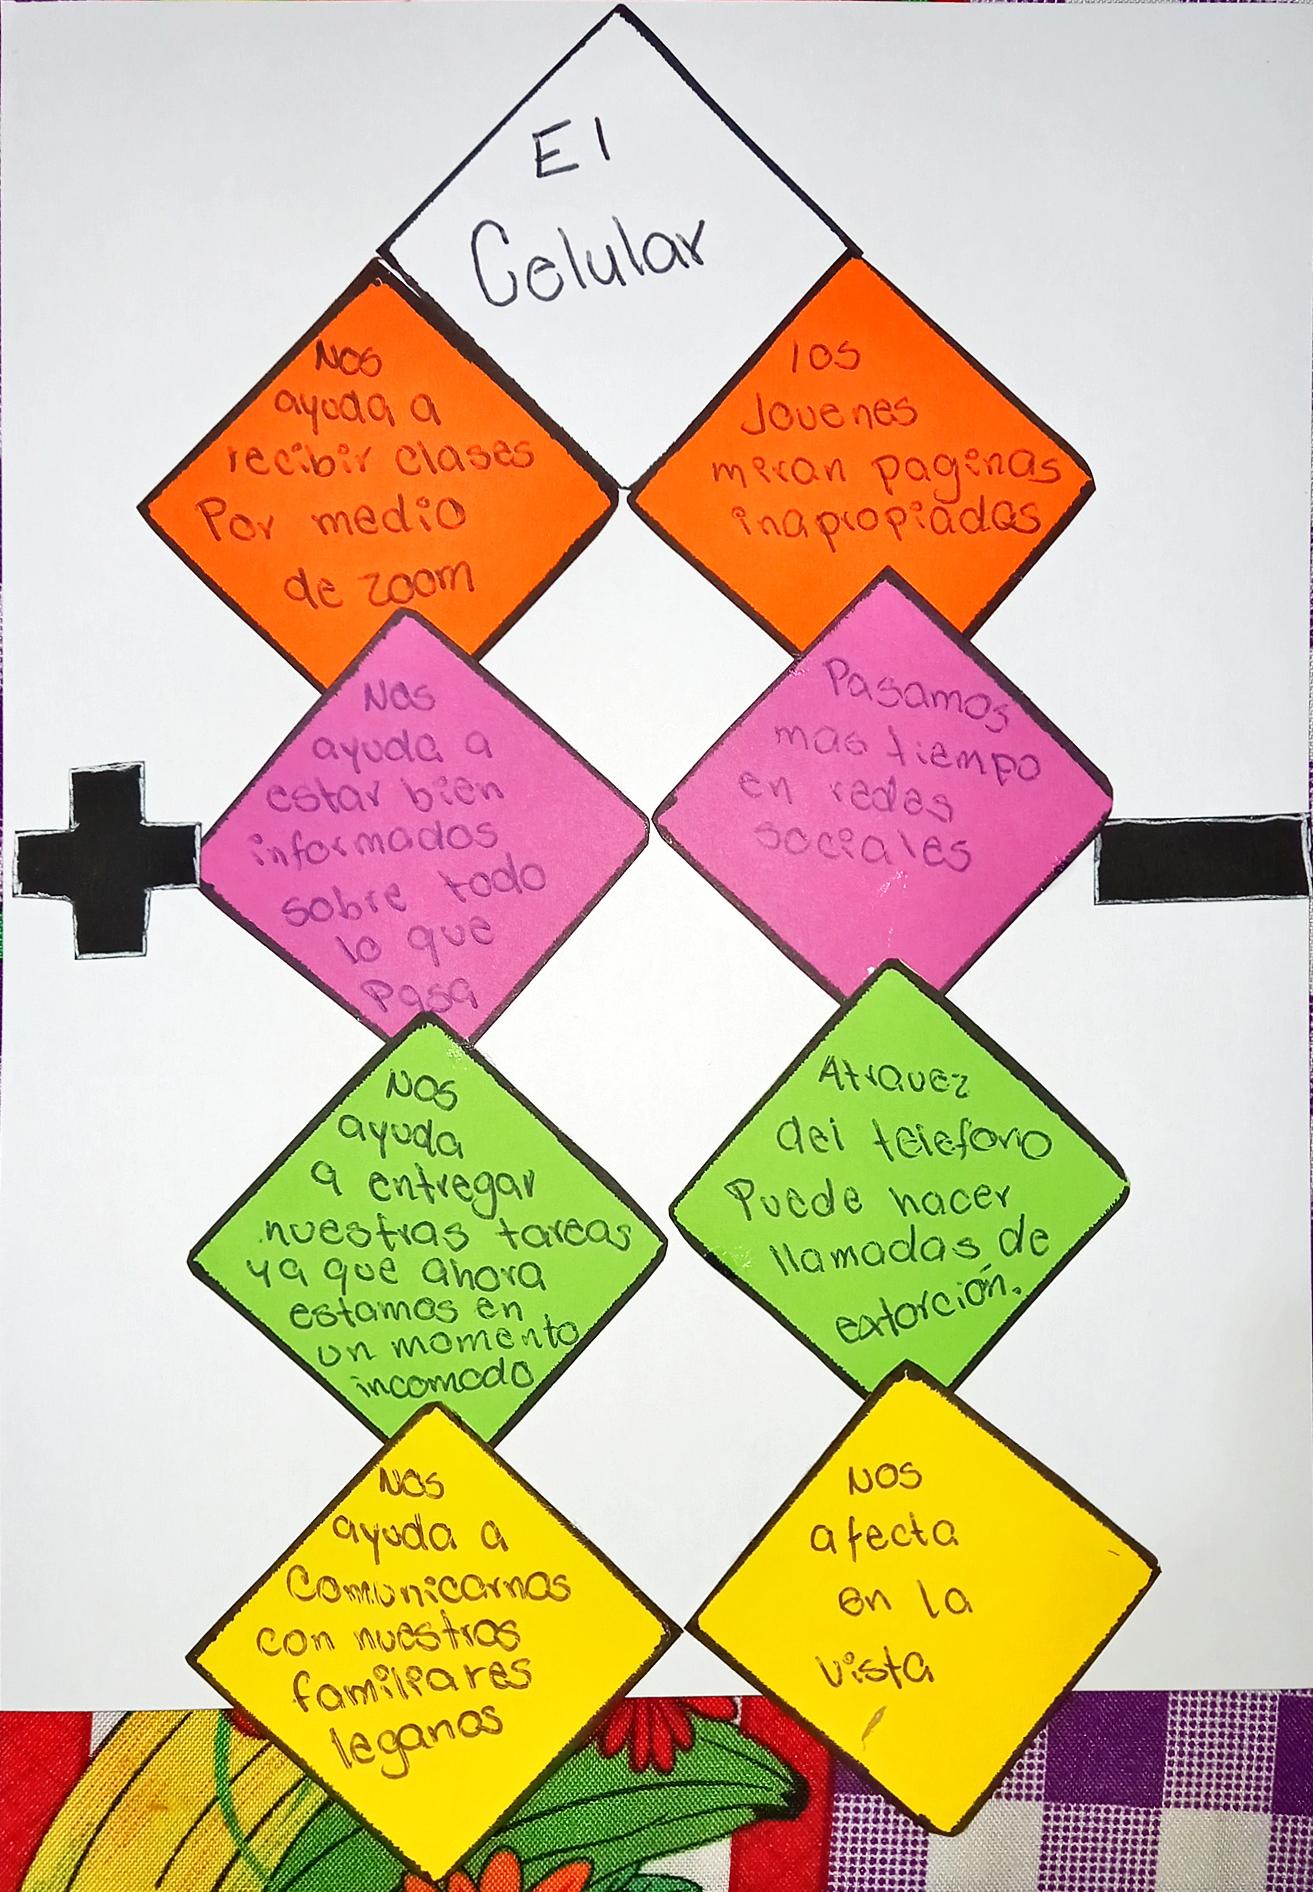 El
Celular
Nos
ayuda a
recibir clases
Por medio
de zoom
los
Jovenes
miran paginas
inapropiadas
Nos
ayuda a
estar bien
informados
sobre todo
lo que
Pasa
Pasamos
mas tiempo
en redes
sociales
Nos
ayuda
a entregar
nuestras tareas
ya que ahora
estamos en
un momento
incomodo
Atravez
del telefono
Puede hacer
llamadas de
extorción.
Nos
ayuda a
Comunicarnos
con nuestros
familiares
leganos
Nos
afecta
en la
vista